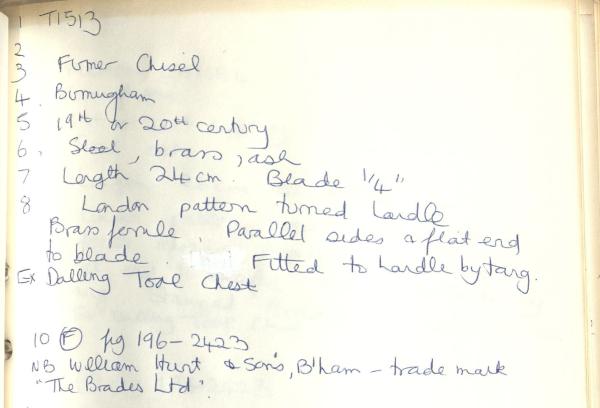 1 T1513
2
3 Firmer Chisel
4. Birmingham
5 19th or 20th century
6. Steel, brass, ash
7 Length 24cm. Blade 1/4"
8 London pattern turned handle
Brass ferrule. Parallel sides a flat end
to blade. Fitted to handle by tang.
Ex Dalling Tool Chest
10 F pg 196-2423
NB William Hunt & Sons, B'ham - trade mark
"The Brades Ltd".